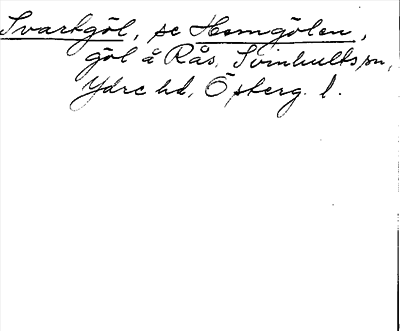 Svartgöl, se Hemgölen,
göl å Rås, Svinhults sn,
Ydre hd, Österg. l.